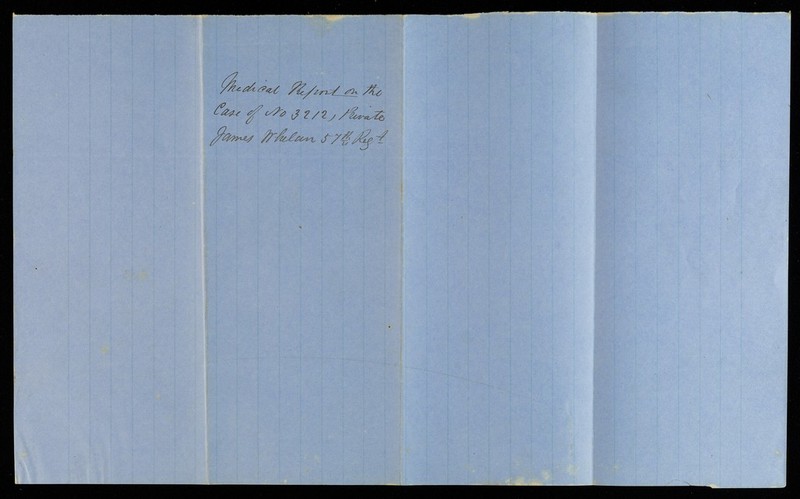 Medical Report on the
Case of No 3212, Private
James Whelan 57th Regt